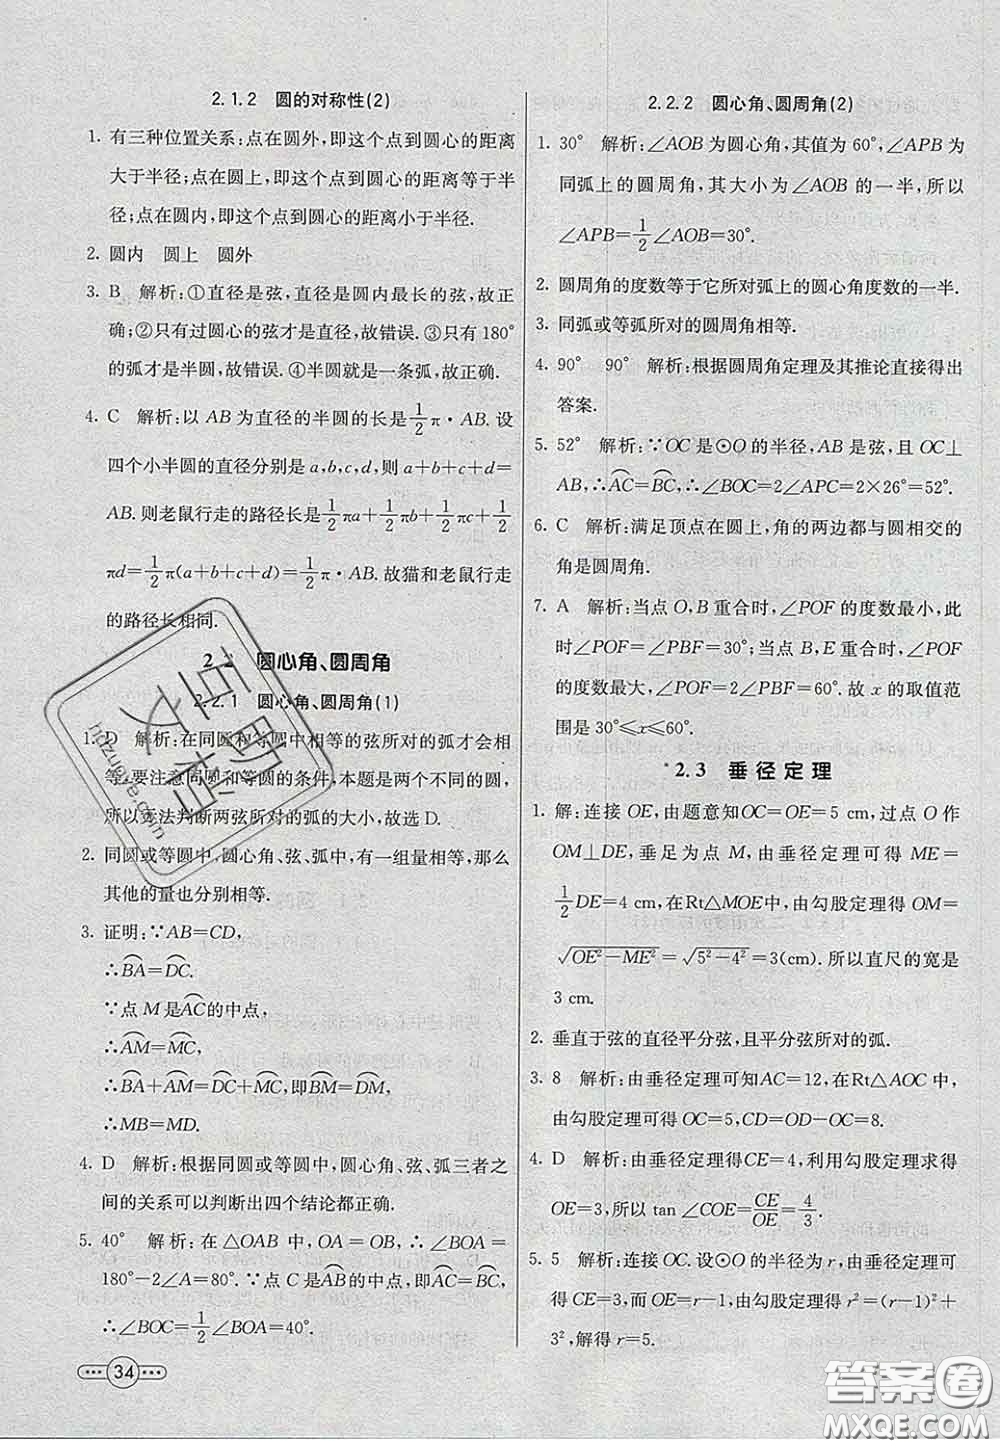 2.1.2 圆的对称性(2)
1. 有三种位置关系:点在圆外,即这个点到圆心的距离
大于半径;点在圆上,即这个点到圆心的距离等于半
径;点在圆内,即这个点到圆心的距离小于半径.
2. 圆内 圆上 圆外
3. B 解析:①直径是弦,直径是圆内最长的弦,故正
确;②只有过圆心的弦才是直径,故错误. ③只有180°
的弧才是半圆,故错误. ④半圆就是一条弧,故正确.
4. C 解析:以 AB 为直径的半圆的长是1/2π·AB. 设
四个小半圆的直径分别是 a,b,c,d,则 a+b+c+d=
AB. 则老鼠行走的路径长是1/2πa+1/2πb+1/2πc+1/2
πd=1/2π(a+b+c+d)=1/2π·AB. 故猫和老鼠行走
的路径长相同.
2.2 圆心角、圆周角
2.2.1 圆心角、圆周角(1)
1. D 解析:在同圆和等圆中相等的弦所对的弧才会相
等,要注意同圆和等圆的条件,本题是两个不同的圆,
所以无法判断两弦所对的弧的大小,故选 D.
2. 同圆或等圆中,圆心角、弦、弧中,有一组量相等,那么
其他的量也分别相等.
3. 证明:∵AB=CD,
∴⌒BA=⌒DC.
∵点 M 是⌒AC的中点,
∴⌒AM=⌒MC.
∴⌒BA+⌒AM=⌒DC+⌒MC,即⌒BM=⌒DM,
∴MB=MD.
4. D 解析:根据同圆或等圆中,圆心角、弦、弧三者之
间的关系可以判断出四个结论都正确.
5. 40° 解析:在△OAB 中,OA=OB,∴∠BOA=
180°−2∠A=80°. ∵点 C 是⌒AB的中点,即⌒AC=⌒BC,
∴∠BOC=1/2∠BOA=40°.
34
2.2.2 圆心角、圆周角(2)
1. 30° 解析:∠AOB 为圆心角,其值为 60°,∠APB 为
同弧上的圆周角,其大小为∠AOB 的一半,所以
∠APB=1/2∠AOB=30°.
2. 圆周角的度数等于它所对弧上的圆心角度数的一半.
3. 同弧或等弧所对的圆周角相等.
4. 90° 90° 解析:根据圆周角定理及其推论直接得出
答案.
5. 52° 解析:∵OC 是⊙O 的半径,AB 是弦,且 OC⊥
AB,∴⌒AC=⌒BC,∴∠BOC=2∠APC=2×26°=52°.
6. C 解析:满足顶点在圆上,角的两边都与圆相交的
角是圆周角.
7. A 解析:当点 O,B 重合时,∠POF 的度数最小,此
时∠POF=∠PBF=30°;当点 B,E 重合时,∠POF
的度数最大,∠POF=2∠PBF=60°. 故 x 的取值范
围是 30°≤x≤60°.
*2.3 垂径定理
1. 解:连接 OE,由题意知OC=OE=5 cm,过点 O 作
OM⊥DE,垂足为点 M,由垂径定理可得 ME=
1/2DE=4 cm,在Rt△MOE中,由勾股定理得 OM=
√(OE²−ME²)=√(5²−4²)=3(cm). 所以直尺的宽是
3 cm.
2. 垂直于弦的直径平分弦,且平分弦所对的弧.
3. 8 解析:由垂径定理可知AC=12,在Rt△AOC 中,
由勾股定理可得 OC=5,CD=OD−OC=8.
4. D 解析:由垂径定理得CE=4,利用勾股定理求得
OE=3,所以 tan∠COE=CE/OE=4/3.
5. 5 解析:连接 OC. 设⊙O 的半径为 r,由垂径定理可
得 CE=3,而 OE=r−1,由勾股定理得 r²=(r−1)²+
3²,解得 r=5.
百职作文
hdzuoye.com
答案圈
MXQE.COM